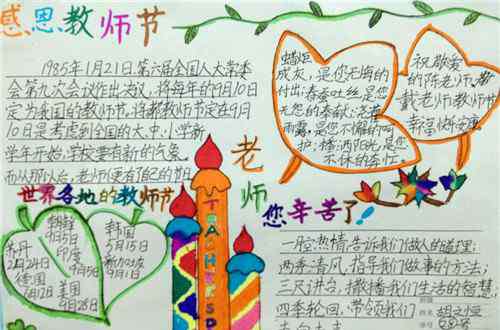 感恩教师节
1985年1月21日.第六届全国人大常委
会第九次会议作出决议,将每年的9月10日
定为我国的教师节.将教师节定在9月
10日是考虑到全国的大、中、小学新
学年开始,学校要有新的气象.
蜡炬
成灰,是您无悔的
付出;春蚕吐丝是您
无怨的奉献;花草
雨露,是您不偏的呵
护;播洒阳光,是您
不休的责任.
祝敬爱
的陈老师、
戴老师教师节
幸福快安康
世界各地的教师节
朝鲜
9月5日
印度
9月5日
约旦
2月24日
德国
6月12日
美国
9月28日
韩国
5月15日
新加坡
9月1日
TEACHERSD
老师
您辛苦了!
一脸热情,告诉我们做人的道理;
两季清风,指导我们做事的方法;
三尺讲台,撒播我们生活的智慧;
四季轮回,带领我们
姓名 胡文恒